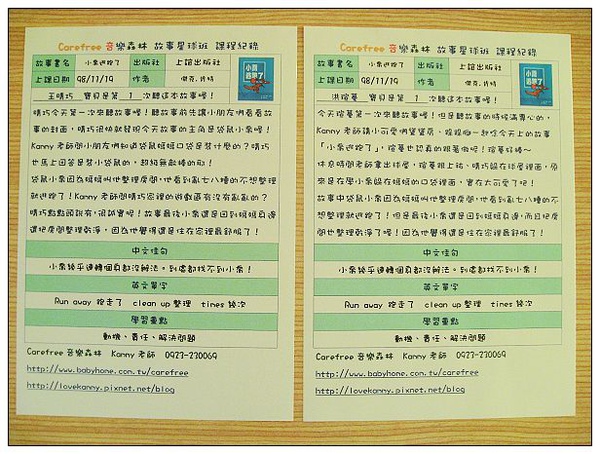 Carefree 音樂森林 故事星球班 課程紀錄
故事書名 小乖逃跑了 出版社 上誼出版社
上課日期 98/11/19 作者 傑克.肯特
王晴巧 寶貝是第 1 次聽這本故事喔！
晴巧今天第一次來聽故事喔！聽故事前先讓小朋友們看看故
事的封面，晴巧很快就發現今天故事的主角是袋鼠小乖喔！
Kanny老師問小朋友們知道袋鼠媽媽口袋是裝什麼的？晴巧
也馬上回答是裝小袋鼠的，超級無敵棒的啦！
袋鼠小乖因為媽媽叫他整理房間，他看到亂七八糟的不想整理
就逃跑了！Kanny老師問晴巧家裡的遊戲區有沒有亂亂的？
晴巧點點頭說有，很誠實喔！故事最後小乖還是回到媽媽身邊
還把房間整理乾淨，因為他覺得還是住在家裡最舒服了！
中文佳句
小乖幾乎連轉個身都沒辦法。到處都找不到小乖！
英文單字
Run away 跑走了 clean up 整理 tines 幾次
學習重點
動機、責任、解決問題
Carefree 音樂森林 Kanny老師 0927-230069
http://www.babyhome.com.tw/carefree
http://lovekanny.pixnet.net/blog
Carefree 音樂森林 故事星球班 課程紀錄
故事書名 小乖逃跑了 出版社 上誼出版社
上課日期 98/11/19 作者 傑克.肯特
洪煊蔓 寶貝是第 1 次聽這本故事喔！
今天煊蔓第一次來聽故事喔！但是聽故事的時候滿專心的，
Kanny老師請小可愛們寶寶席，跟跟唸一起唸今天上的故事
「小乖逃跑了」，煊蔓也認真的跟著做呢！煊蔓好棒~
休息時間老師拿出球屋，煊蔓跟上祐、晴巧躲在球屋裡面，原
來是在學小乖躲在媽媽的口袋裡面，實在太可愛了吧！
故事中袋鼠小乖因為媽媽叫他整理房間，他看到亂七八糟的不
想整理就逃跑了！但是最後小乖還是回到媽媽身邊，而且把房
間也整理乾淨了喔！因為他覺得還是住在家裡最舒服了！
中文佳句
小乖幾乎連轉個身都沒辦法。到處都找不到小乖！
英文單字
Run away 跑走了 clean up 整理 tines 幾次
學習重點
動機、責任、解決問題
Carefree 音樂森林 Kanny老師 0927-230069
http://www.babyhome.com.tw/carefree
http://lovekanny.pixnet.net/blog